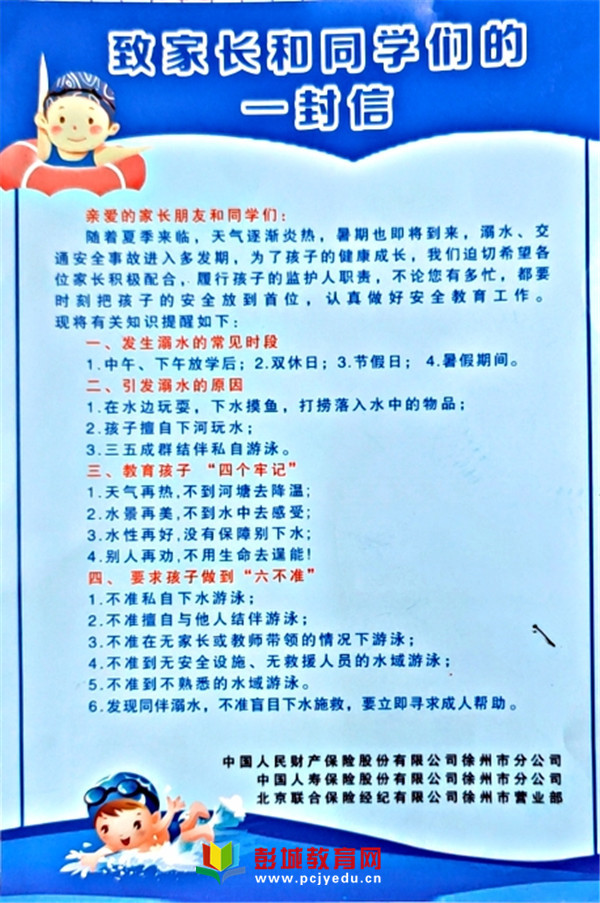 致家长和同学们的
一封信
亲爱的家长朋友和同学们：
随着夏季来临，天气逐渐炎热，暑期也即将到来，溺水、交
通安全事故进入多发期，为了孩子的健康成长，我们迫切希望各
位家长积极配合，履行孩子的监护人职责，不论您有多忙，都要
时刻把孩子的安全放到首位，认真做好安全教育工作。
现将有关知识提醒如下：
一、发生溺水的常见时段
1.中午、下午放学后；2.双休日；3.节假日； 4.暑假期间。
二、引发溺水的原因
1.在水边玩耍，下水摸鱼，打捞落入水中的物品；
2.孩子擅自下河玩水；
3.三五成群结伴私自游泳。
三、教育孩子 “四个牢记”
1.天气再热,不到河塘去降温；
2.水景再美,不到水中去感受；
3.水性再好,没有保障别下水；
4.别人再劝,不用生命去逞能!
四、 要求孩子做到“六不准”
1.不准私自下水游泳；
2.不准擅自与他人结伴游泳；
3.不准在无家长或教师带领的情况下游泳；
4.不准到无安全设施、无救援人员的水域游泳；
5.不准到不熟悉的水域游泳。
6.发现同伴溺水，不准盲目下水施救，要立即寻求成人帮助。
中国人民财产保险股份有限公司徐州市分公司
中国人寿保险股份有限公司徐州市分公司
北京联合保险经纪有限公司徐州市营业部
彭城教育网
www.pcjyedu.cn